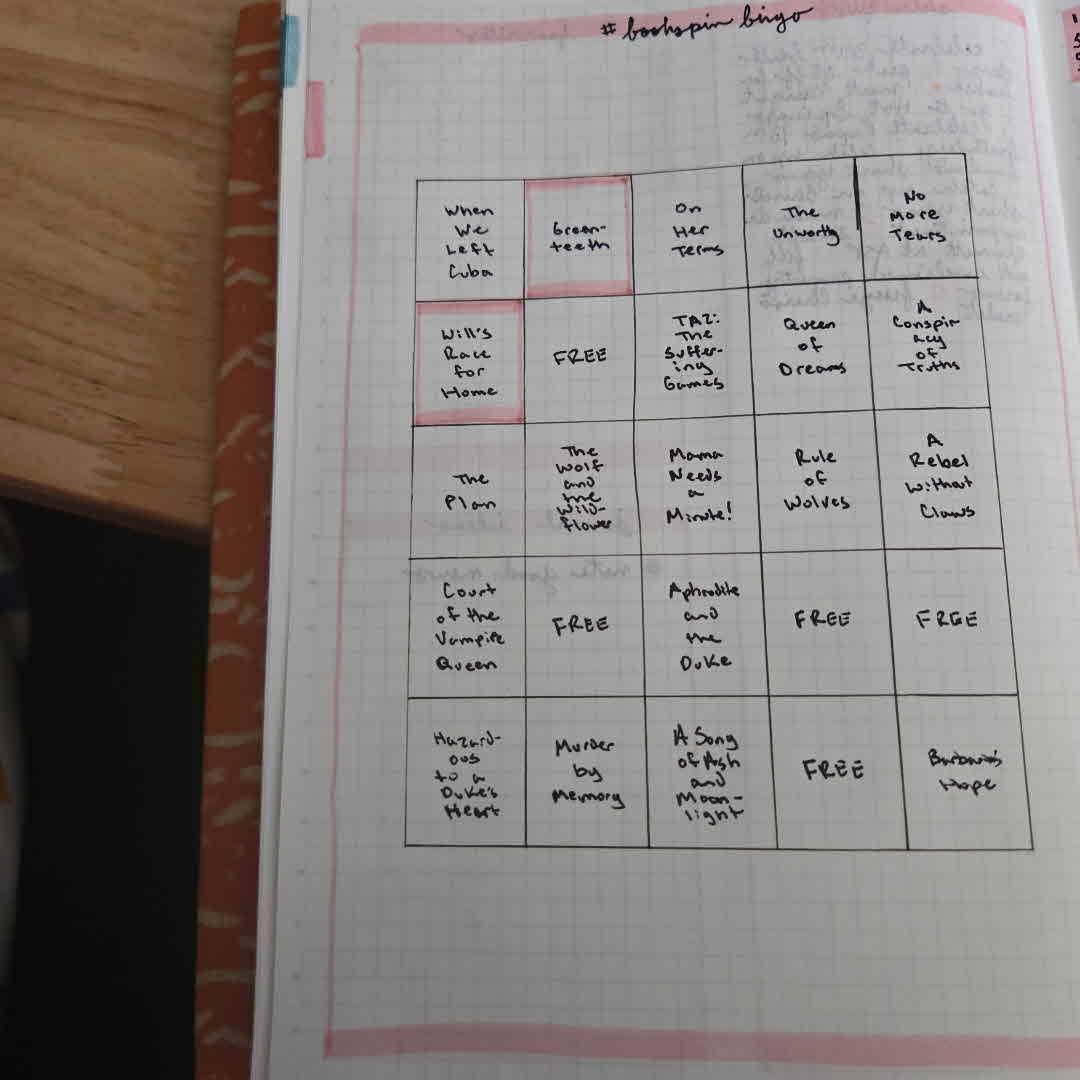 #bookspin bingo
When
We
Left
Cuba
Green-
teeth
On
Her
Terms
The
Unworthy
No
More
Tears
Will's
Race
for
Home
FREE
TAZ:
The
Suffer-
ing
Games
Queen
of
Dreams
A
Conspir
acy
of
Truths
The
Plan
The
Wolf
and
the
Wild-
flower
Mama
Needs
a
Minute!
Rule
of
Wolves
A
Rebel
Without
Claws
Court
of the
Vampire
Queen
FREE
Aphrodite
and
the
Duke
FREE
FREE
Hazard-
ous
to a
Duke's
Heart
Murder
by
Memory
A Song
of Ash
and
Moon-
light
FREE
Barbarian's
Hope